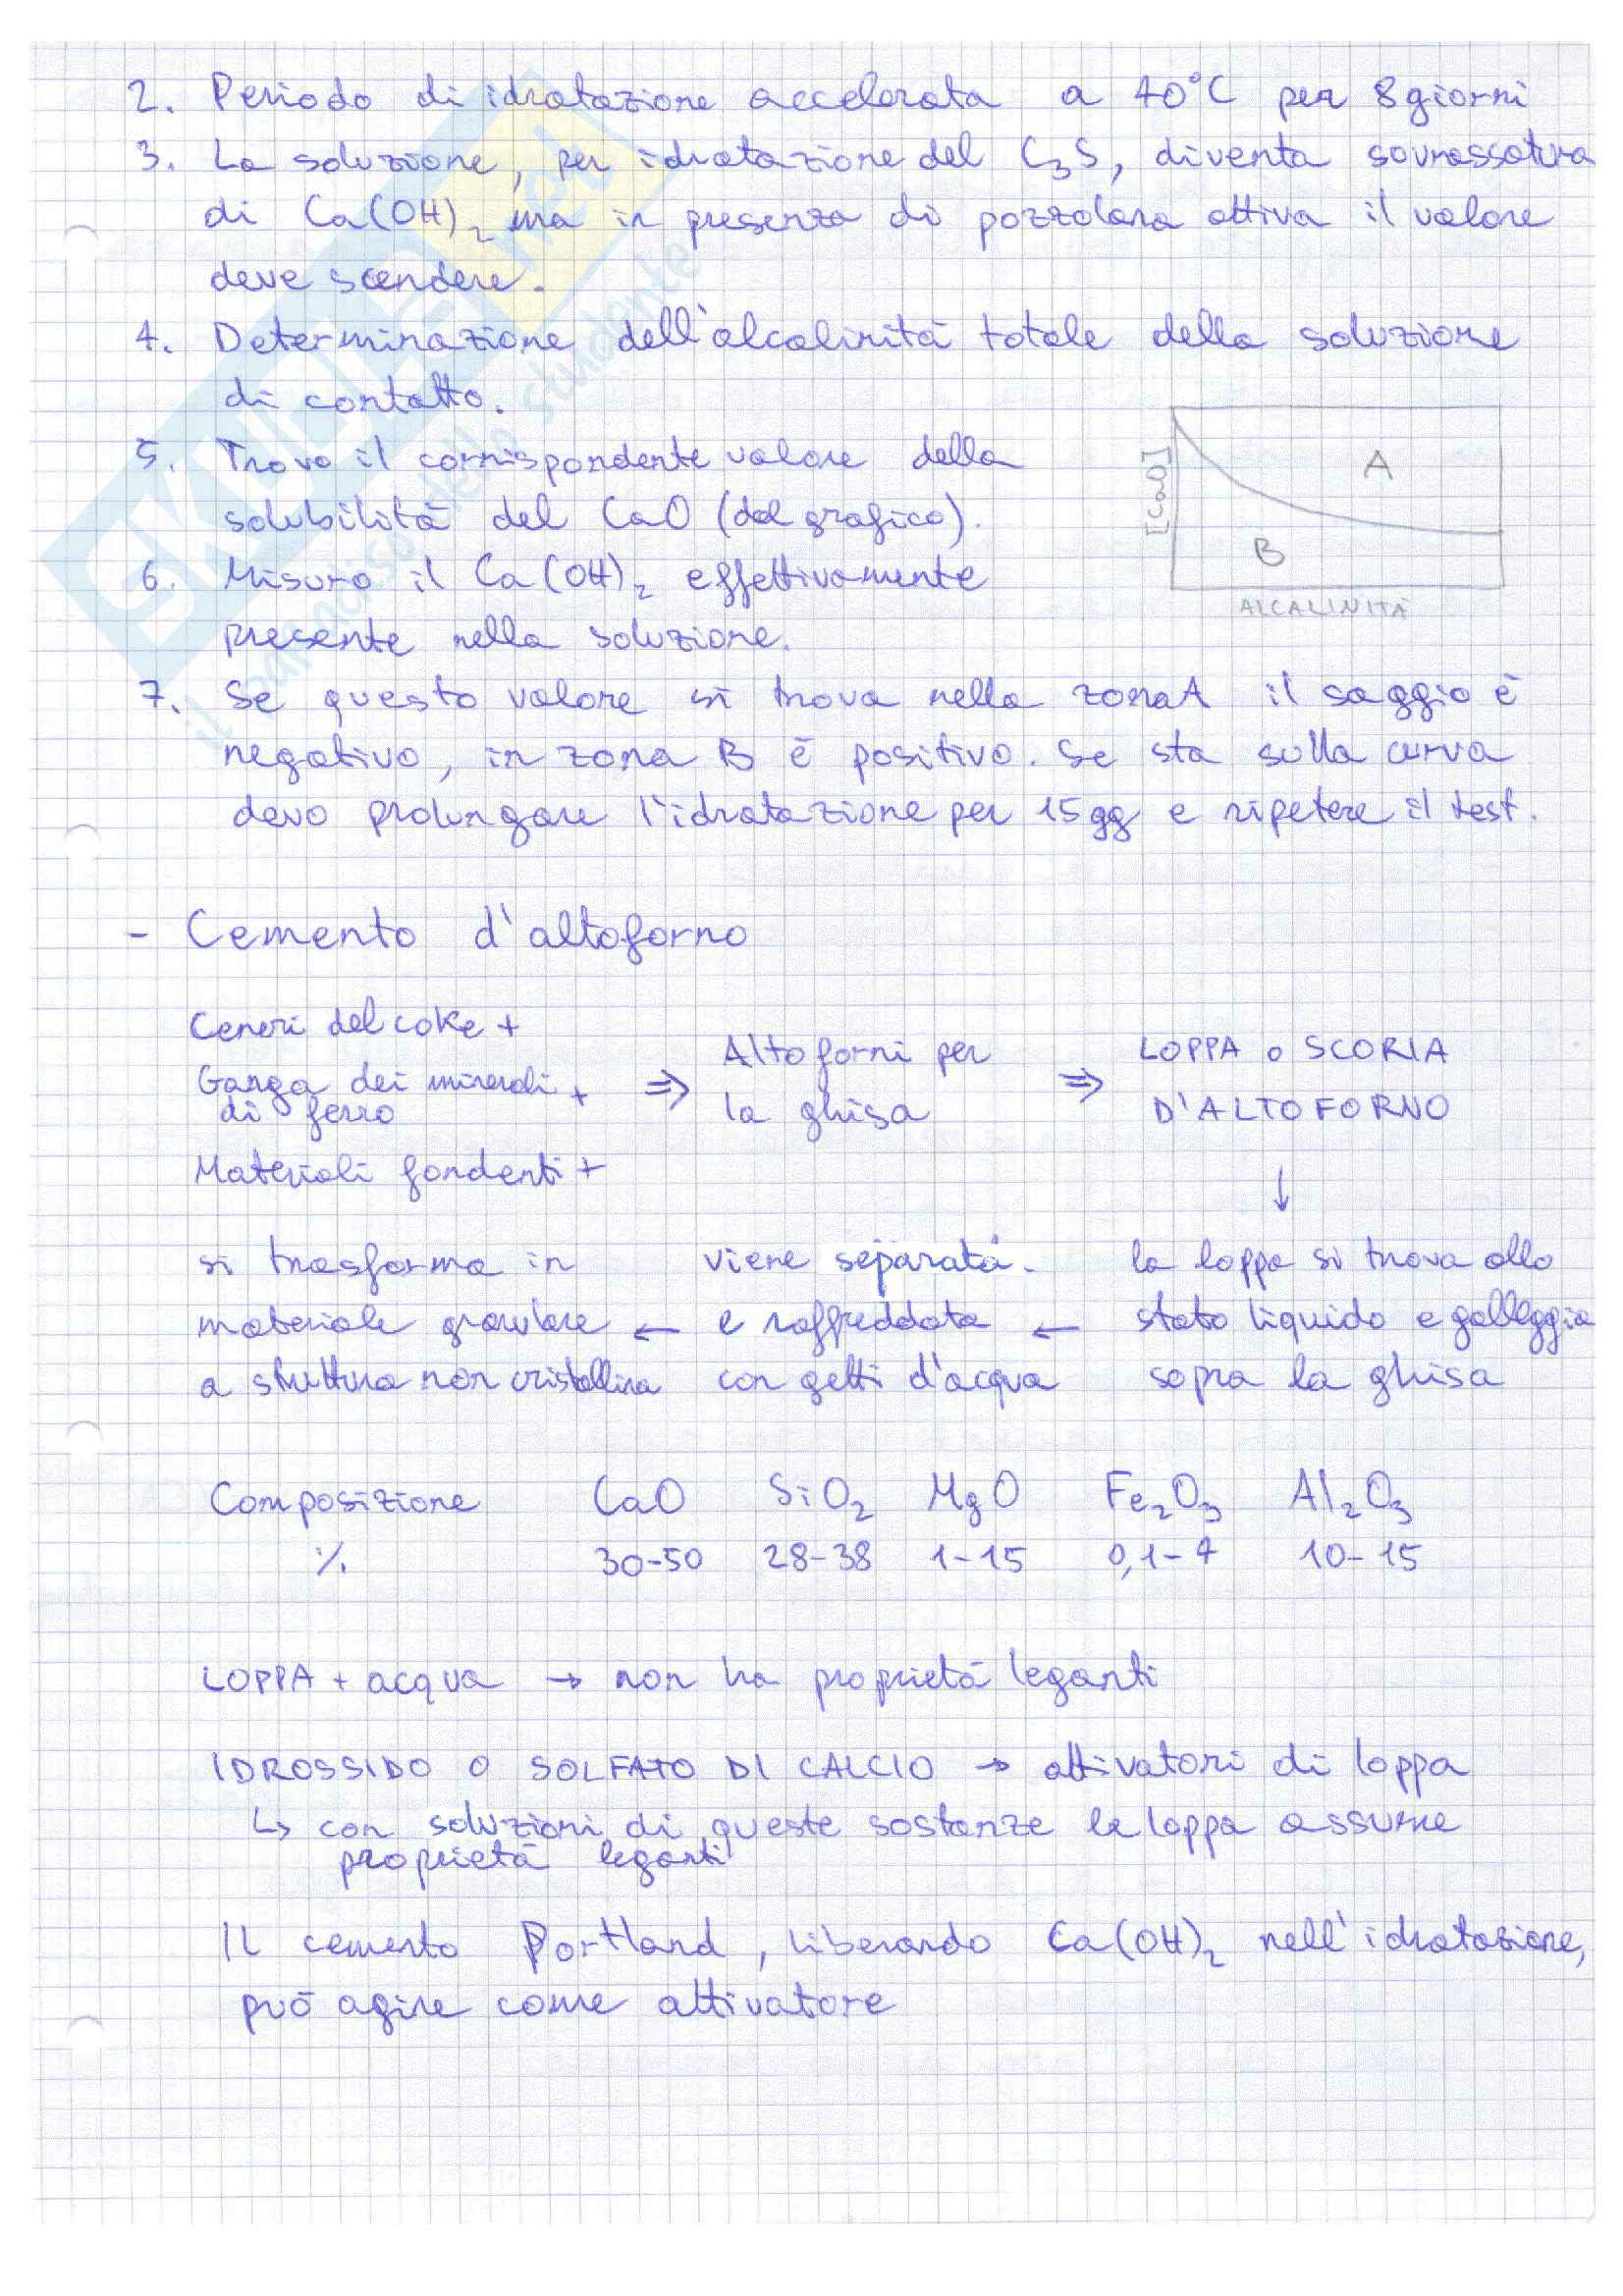 2. Periodo di idratazione accelerata a 40°C per 8 giorni
3. La soluzione, per idratazione del C₃S, diventa sovrassatura
di Ca(OH)₂ ma in presenza di pozzolana attiva il valore
deve scendere.
4. Determinazione dell'alcalinità totale della soluzione
di contatto.
5. Trovo il corrispondente valore della
solubilità del CaO (dal grafico).
6. Misuro il Ca(OH)₂ effettivamente
presente nella soluzione.
[CaO]
A
B
ALCALINITÀ
7. Se questo valore si trova nella zona A il saggio è
negativo, in zona B è positivo. Se sta sulla curva
devo prolungare l'idratazione per 15gg e ripetere il test.
- Cemento d'altoforno
Ceneri del coke +
Ganga dei minerali +
di ferro
Materiali fondenti +
⇒ Altoforni per
la ghisa
⇒ LOPPA o SCORIA
D'ALTOFORNO
↓
la loppa si trova allo
stato liquido e galleggia
sopra la ghisa
← viene separata
e raffreddata
con getti d'acqua
← si trasforma in
materiale granulare
a struttura non cristallina
Composizione CaO SiO₂ MgO Fe₂O₃ Al₂O₃
% 30-50 28-38 1-15 0,1-4 10-15
LOPPA + acqua → non ha proprietà leganti
IDROSSIDO O SOLFATO DI CALCIO → attivatori di loppa
↳ con soluzioni di queste sostanze la loppa assume
proprietà leganti
Il cemento Portland, liberando Ca(OH)₂ nell'idratazione,
può agire come attivatore